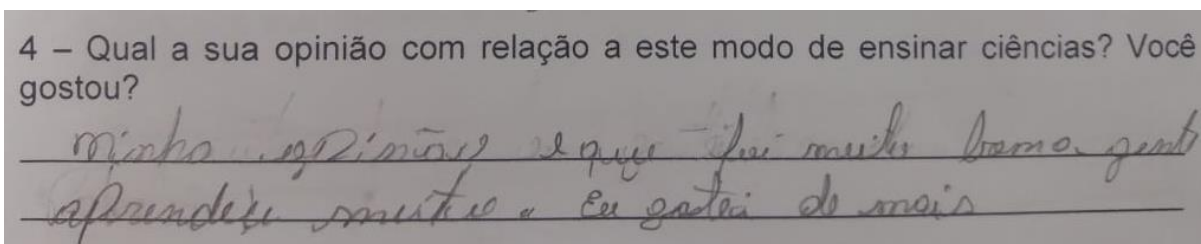 4 – Qual a sua opinião com relação a este modo de ensinar ciências? Você
gostou?
minha opinião e que foi muito bom a gent
aprendeu muito e eu gostei de mais